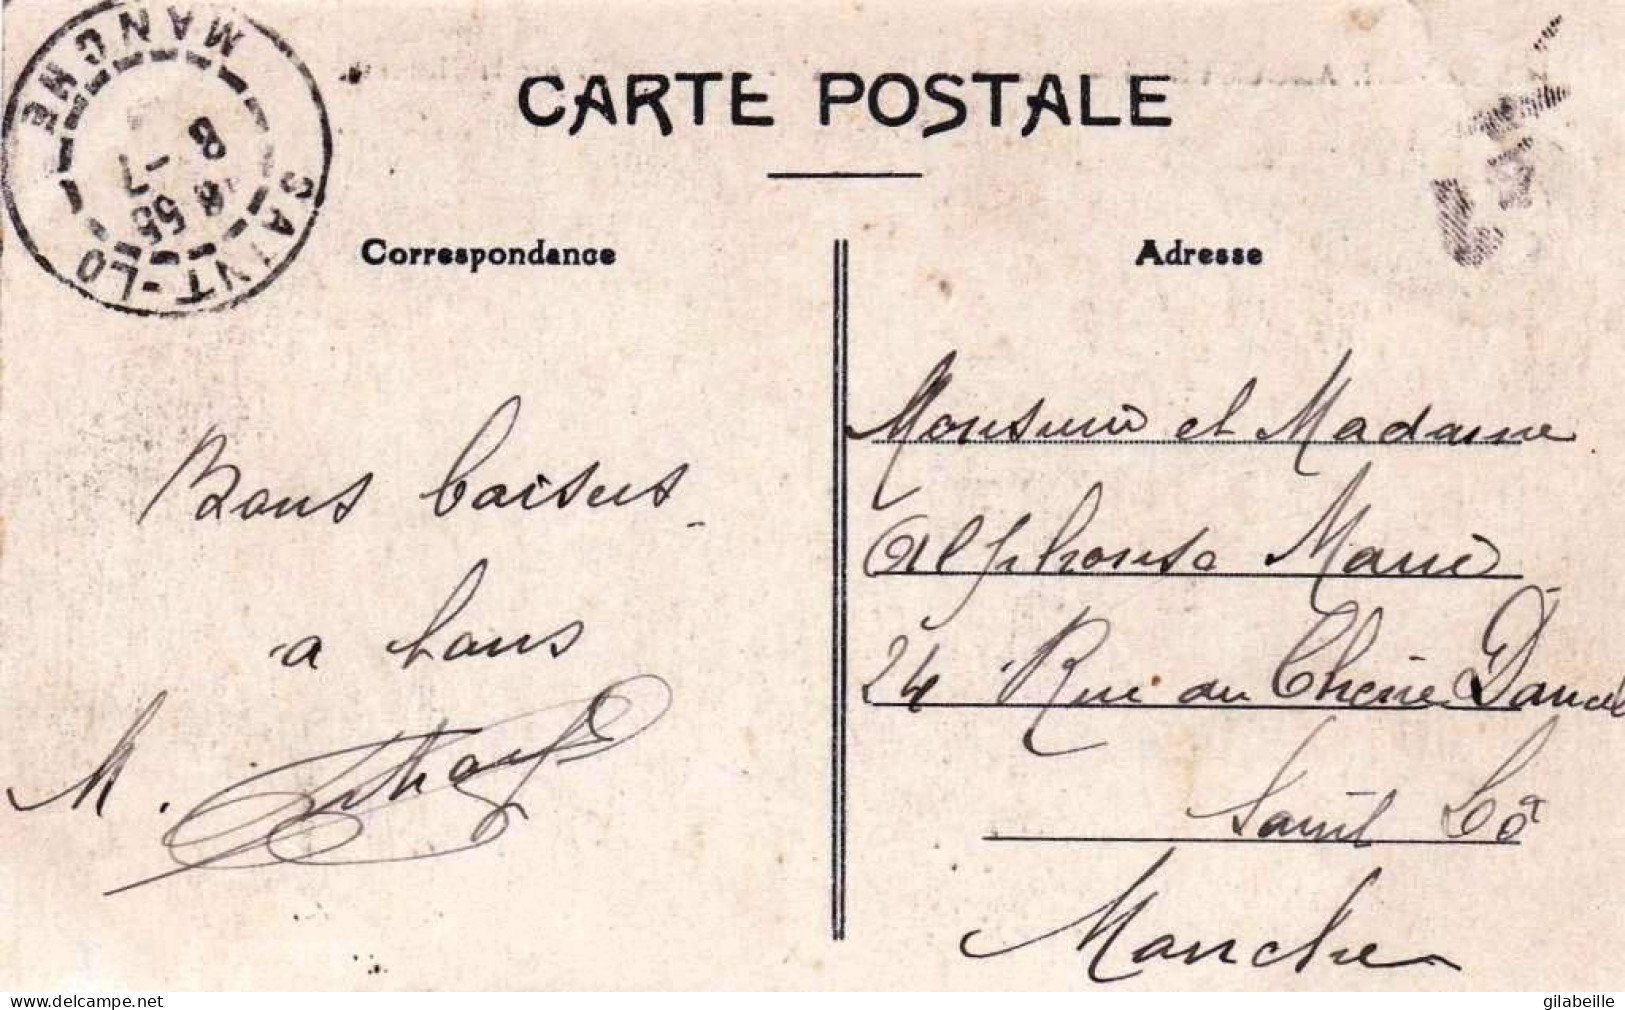 CARTE POSTALE
SAINT-LÔ
MANCHE
Correspondance
Adresse
Bons baisers
a tous
M.
Monsieur et Madame
Alphonse Marie
24 Rue du Chêne Dancel
Saint Lô
Manche
delcampe.net
gilabeille